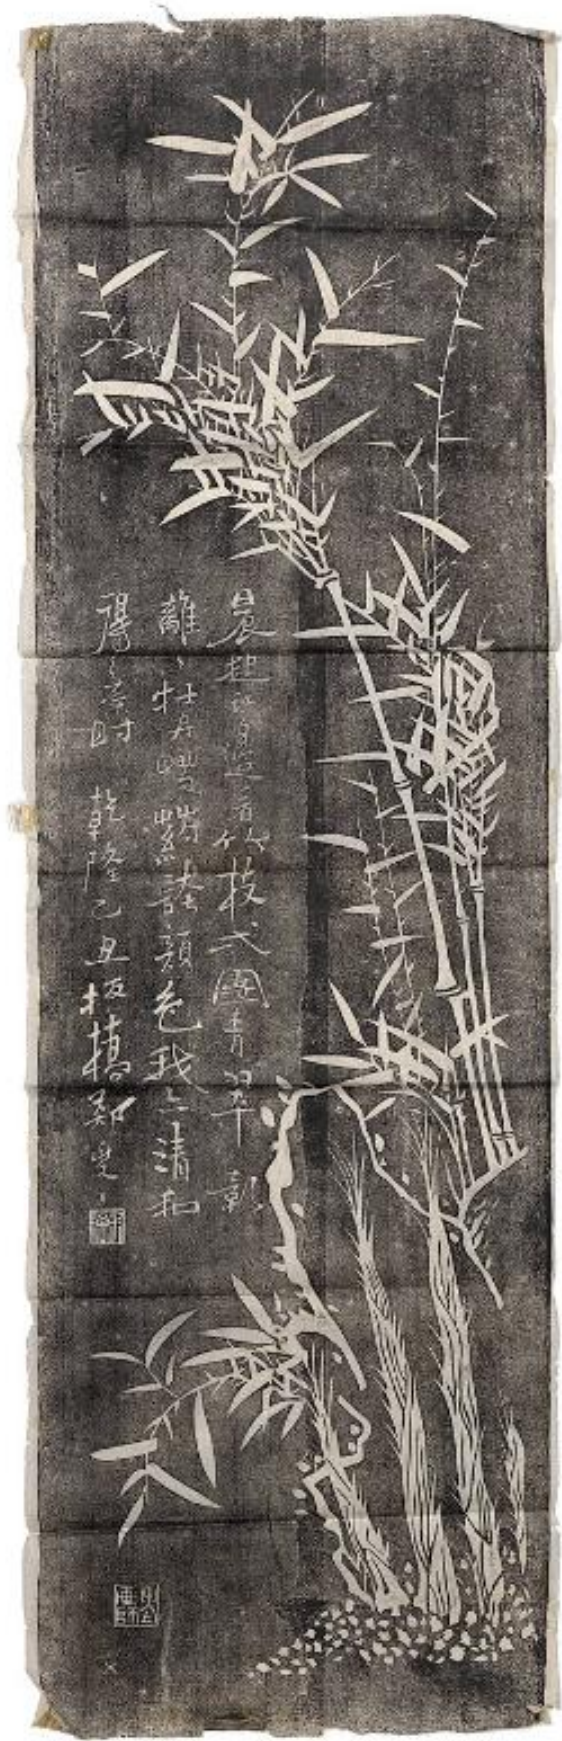 晨起江邊看竹枝弌團青翠影
離〻牡丹芍藥誇顏色我亦清和
得意時 乾隆乙丑板橋鄭燮